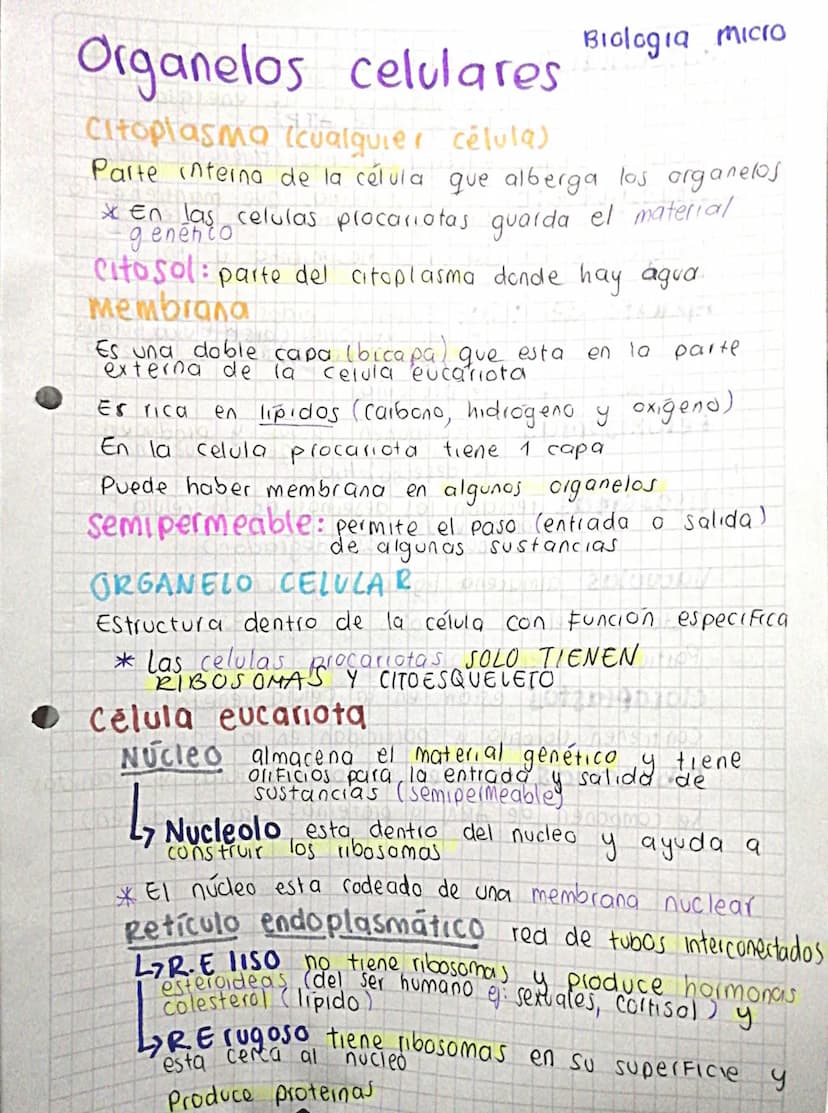 Biologia micro
Organelos celulares
Citoplasma (cualquier célula)
Parte interna de la célula que alberga los organelos
* En las celulas procariotas guarda el material
genético
Citosol: parte del citoplasma donde hay água
membrana
Es una doble capa (bicapa) que esta en la parte
externa de la celula eucariota
Es rica en lípidos (carbono, hidrógeno y oxigeno)
En la celula procariota tiene 1 capa
Puede haber membrana en algunos organelos
semipermeable: permite el paso (entrada o salida)
de algunas sustancias
ORGANELO CELULAR
Estructura dentro de la célula con función especifica
* Las celulas procariotas SOLO TIENEN
RIBOSOMAS Y CITOESQUELETO
Célula eucariota
Núcleo almacena el material genético y tiene
orificios para la entrada y salida de
sustancias (semipermeable)
↳ Nucleolo esta dentro del nucleo y ayuda a
construir los ribosomas
* El núcleo esta rodeado de una membrana nuclear
Retículo endoplasmático red de tubos interconectados
↳ R.E liso no tiene ribosomas y produce hormonas
esteroideas (del ser humano ej: sexuales, cortisol) y
colesterol (lípido)
↳ R.E rugoso tiene ribosomas en su superficie y
esta cerca al nucleo
Produce proteinas